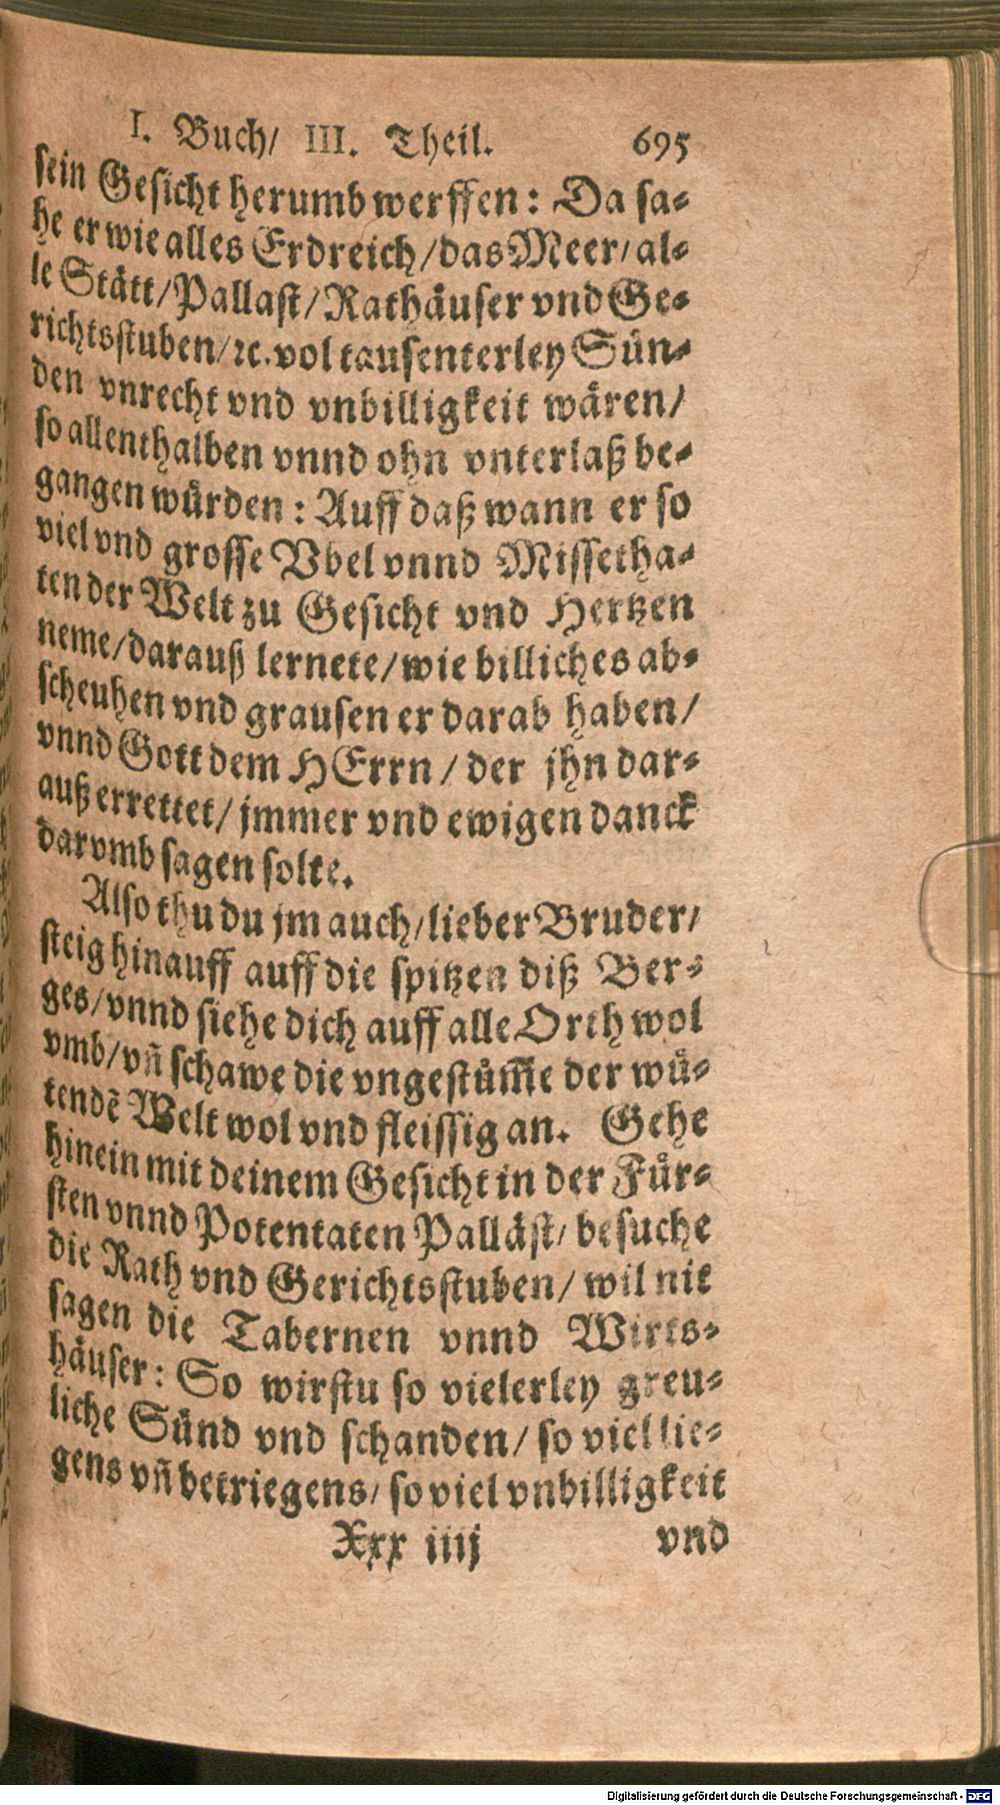 I. Buch/ III. Theil. 695
sein Gesicht herumb werffen: Da sa-
he er wie alles Erdreich/das Meer/al-
le Stätt/Pallast/Rathäuser vnd Ge-
richtsstuben/ꝛc. vol tausenterley Sün-
den vnrecht vnd vnbilligkeit wären/
so allenthalben vnnd ohn vnterlaß be-
gangen würden: Auff daß wann er so
viel vnd grosse Vbel vnnd Missetha-
ten der Welt zu Gesicht vnd Hertzen
neme/darauß lernete/wie billich es ab-
scheuhen vnd grausen er darab haben/
vnnd Gott dem HErrn/ der jhn dar-
auß errettet/ jmmer vnd ewigen danck
darvmb sagen solte.
Also thu du jm auch/lieber Bruder/
steig hinauff auff die spitzen diß Ber-
ges/vnnd siehe dich auff alle Orth wol
vmb/vñ schawe die vngestüm̃e der wü-
tendẽ Welt wol vnd fleissig an. Gehe
hinein mit deinem Gesicht in der Für-
sten vnnd Potentaten Palläst/ besuche
die Rath vnd Gerichtsstuben/ wil nit
sagen die Tabernen vnnd Wirts-
häuser: So wirstu so vielerley greu-
liche Sünd vnd schanden/ so viel lie-
gens vñ betriegens/ so viel vnbilligkeit
Xxx iiij vnd
Digitalisierung gefördert durch die Deutsche Forschungsgemeinschaft - DFG